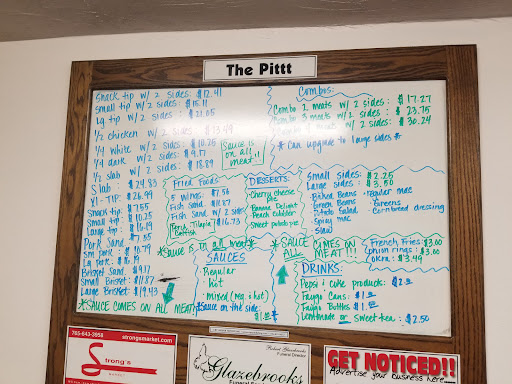 The Pittt
Snack tip w/ 2 sides: $12.41
Small tip w/ 2 sides: $15.11
Lg tip w/ 2 sides: $21.05
1/2 chicken w/ 2 sides: $13.49
1/4 white w/ 2 sides: $10.25
1/4 dark w/ 2 sides: $9.17
1/2 slab w/ 2 sides: $18.89
Slab: $24.83
Xl-TIP: $26.99
Snack tip: $7.55
Small tip: $10.25
Large tip: $16.19
Pork Sand $7.55
Sm pork: $10.79
Lg Pork: $15.19
Brisket Sand. $9.17
Small Brisket: $11.87
Large Brisket: $19.43
*SAUCE COMES ON ALL MEAT!
Sauce is
on all
meat!!
Fried Foods
5 wings: $7.56
Fish Sand $10.87
Fish Sand w/ 2 sides
Perch, Tilapia, $16.73
Catfish
DESSERTS:
Cherry cheese
pie
Banana Delight
Peach Cobbler
Sweet potato pie
*Sauce is on all meat*
SAUCES
Regular
Hot
mixed (reg & hot)
*Sauce on the side
Combos:
Combo 2 meats w/ 2 sides: $17.27
Combo 3 meats w/ 2 sides: $23.75
meats w/ 2 sides: $30.24
* Can upgrade to large sides *
Small sides: $2.25
Large sides: $3.50
-Baked Beans -regular mac
-Green Beans -Greens
-Potato Salad -Cornbread dressing
-Spicy mac
-Slaw
*SAUCE COMES ON
ALL MEAT!!!
French Fries: $3.00
Onion rings: $3.00
Okra: $3.49
DRINKS:
Pepsi & Coke products: $2
Faygo Cans: $1
Faygo Bottles $1
Lemonade or Sweet tea: $2.50
765-643-3958 strongsmarket.com
Strong's
MARKET
Robert Glazebrooks
Funeral Director
Glazebrooks
GET NOTICED!!
Advertise your business here